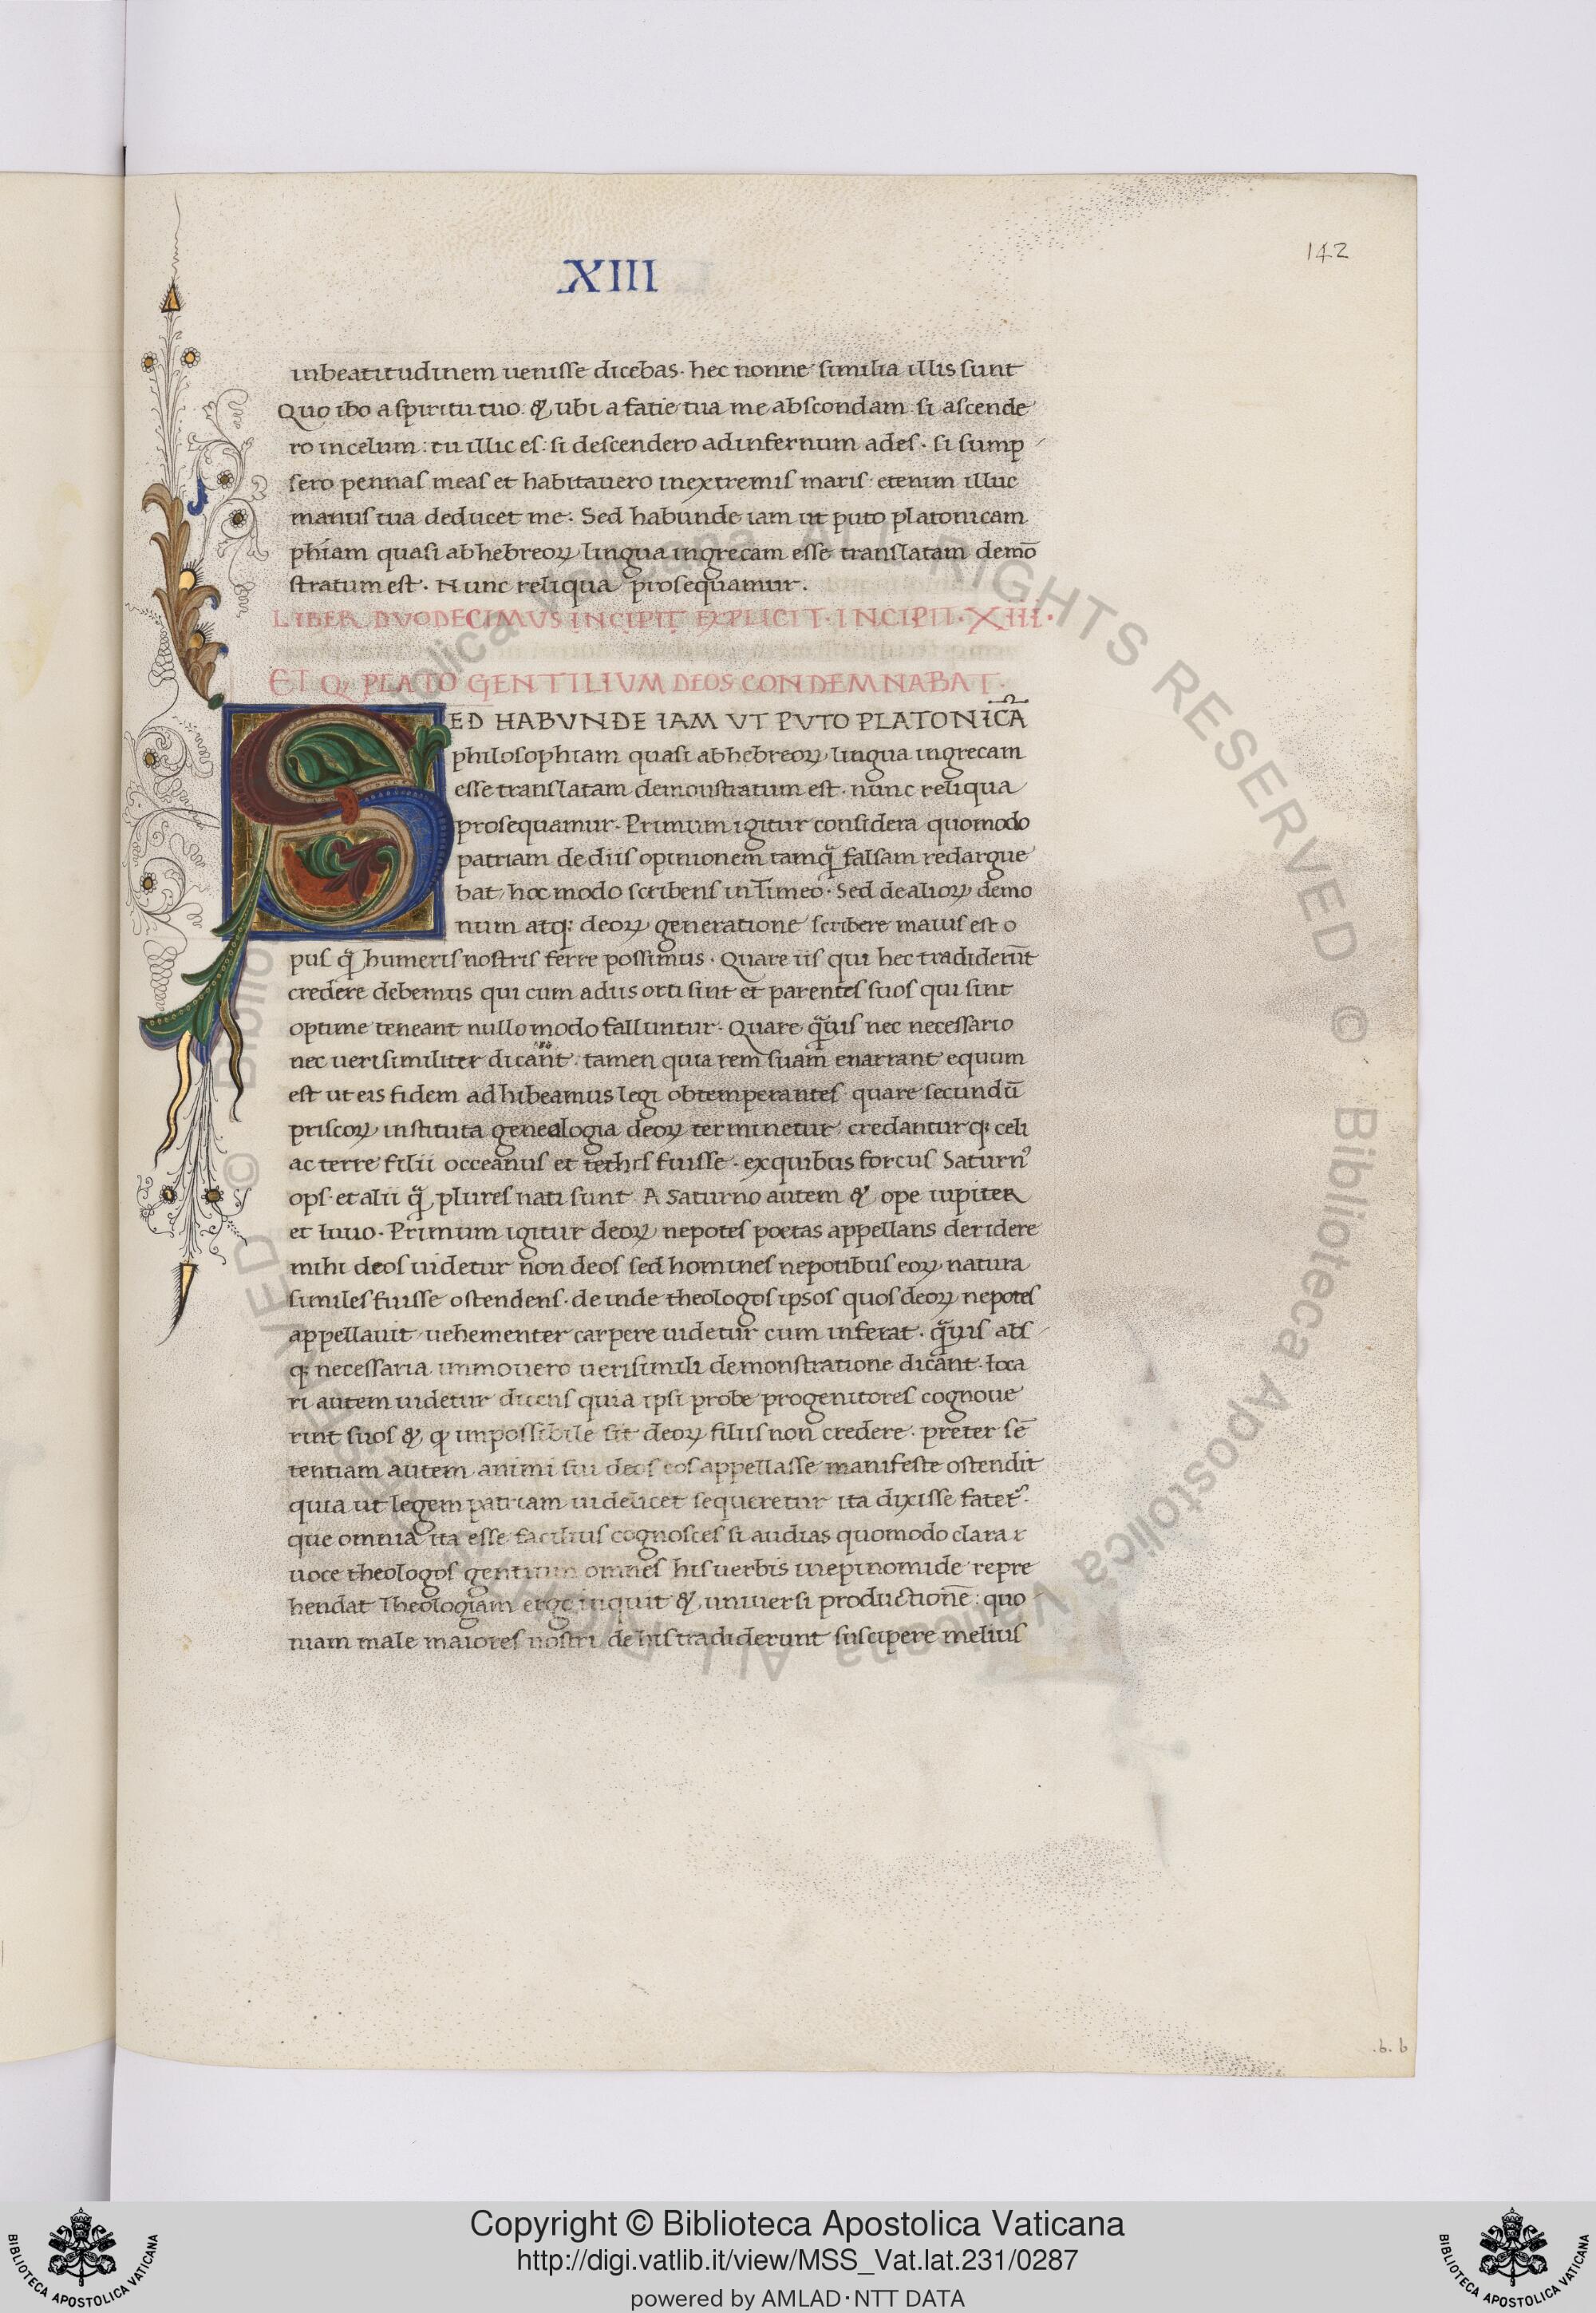 XIII
142
inbeatitudinem uenisse dicebas· hec nonne similia illis sunt
Quo ibo a spiritu tuo: & ubi a facie tua me abscondam: si ascende
ro incelum: tu illic es: si descendero adinfernum ades· si sump
sero pennas meas et habitauero inextremis maris: etenim illuc
manus tua deducet me: Sed habunde iam ut puto platonicam
phiam quasi abhebreoꝝ lingua ingrecam esse translatam demō
stratum est· Nunc reliqua prosequamur.
LIBER DVODECIMVS INCIPIT EXPLICIT· INCIPIT· XIII·
ET Qꝫ PLATO GENTILIVM DEOS CONDEMNABAT·
SED HABVNDE IAM UT PVTO PLATONICĀ
philosophiam quasi abhebreoꝝ lingua ingrecam
esse translatam demonstratum est· nunc reliqua
prosequamur· Primum igitur considera quomodo
patriam de diis opinionem tamq̃ falsam redargue
bat, hoc modo scribens in Timeo· Sed dealioꝝ demo
num atqꝫ deoꝝ generatione scribere maius est o
pus q̃ humeris nostris ferre possimus· Quare iis qui hec tradiderūt
credere debemus qui cum adiis orti sint et parentes suos qui sint
optime teneant nullo modo falluntur· Quare q̃uis nec necessario
nec uerisimiliter dicant· tamen quia rem suam enarrant equum
est ut eis fidem adhibeamus legi obtemperantes· quare secundū
priscoꝝ instituta genealogia deoꝝ terminetur, credanturqꝫ celi
ac terre filii occeanus et tethis fuisse· exquibus forcus Saturn᾽
ops· et alii q̃ plures nati sunt· A Saturno autem & ope iupiter
et Iuno· Primum igitur deoꝝ nepotes poetas appellans deridere
mihi deos uidetur non deos sed homines nepotibus eoꝝ natura
similes fuisse ostendens· deinde theologos ipsos quos deoꝝ nepotes
appellauit uehementer carpere uidetur cum inferat· q̃uis abs
qꝫ necessaria immouero uerisimili demonstratione dicant· Ioca
ri autem uidetur dicens quia ipsi probe progenitores cognoue
rint suos & ꝙ impossibile sit deoꝝ filiis non credere· preter sē
tentiam autem animi sui deos eos appellasse manifeste ostendit
quia ut legem patriam uidelicet sequeretur ita dixisse fatet᾽·
que omnia ita esse facilius cognosces si audias quomodo clara
uoce theologos gentium omnes his uerbis inepinomide repre
hendat Theologiam ergo inquit & uniuersi productionē: quo
niam male maiores nostri de his tradiderunt suscipere melius
.b. b
© Biblioteca Apostolica Vaticana ALL RIGHTS RESERVED
Copyright © Biblioteca Apostolica Vaticana
http://digi.vatlib.it/view/MSS_Vat.lat.231/0287
powered by AMLAD·NTT DATA
BIBLIOTECA APOSTOLICA VATICANA
BIBLIOTECA APOSTOLICA VATICANA